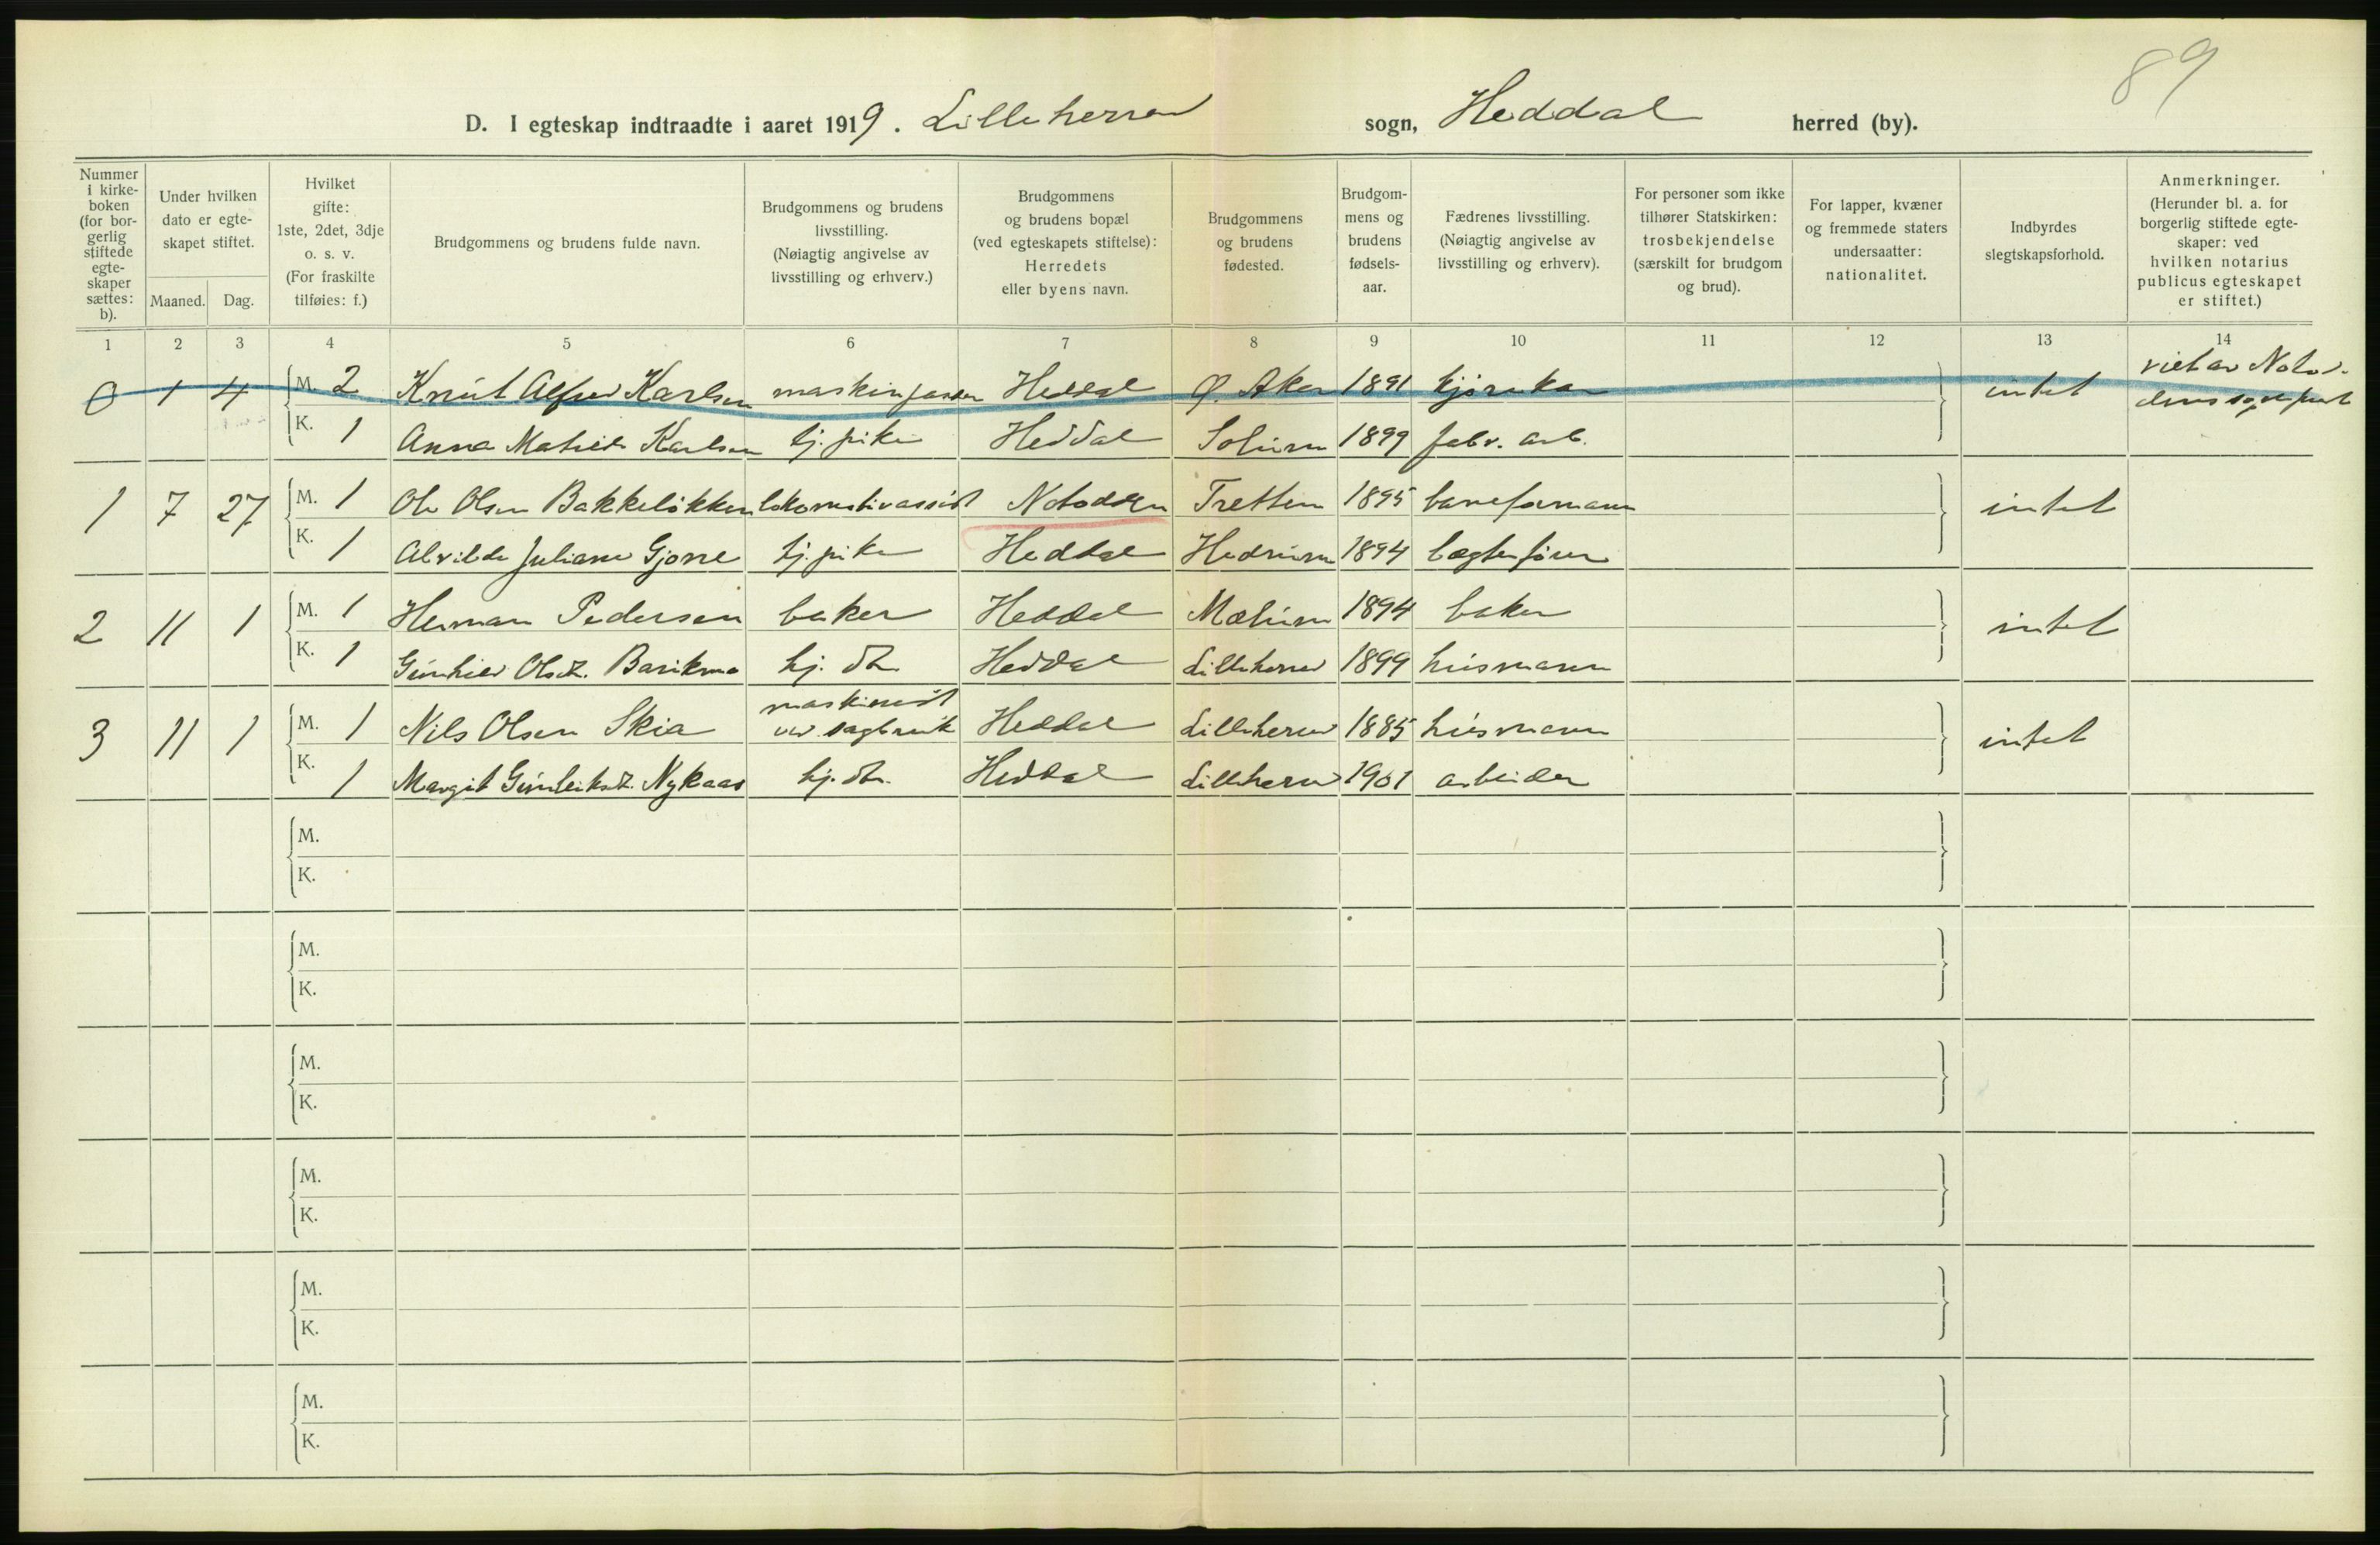 89
D. I egteskap indtraadte i aaret 1919. Lilleherred sogn, Heddal herred (by).
Nummer i kirke-boken (for bor-gerlig stiftede egte-skaper sættes: b).
Under hvilken dato er egte-skapet stiftet.
Maaned. Dag.
Hvilket gifte: 1ste, 2det, 3dje o. s. v. (For fraskilte tilføies: f.)
Brudgommens og brudens fulde navn.
Brudgommens og brudens livsstilling. (Nøiagtig angivelse av livsstilling og erhverv.)
Brudgommens og brudens bopæl (ved egteskapets stiftelse): Herredets eller byens navn.
Brudgommens og brudens fødested.
Brudgom-mens og brudens fødsels-aar.
Fædrenes livsstilling. (Nøiagtig angivelse av livsstilling og erhverv).
For personer som ikke tilhører Statskirken: trosbekjendelse (særskilt for brudgom og brud).
For lapper, kvæner og fremmede staters undersaatter: nationalitet.
Indbyrdes slegtskapsforhold.
Anmerkninger. (Herunder bl. a. for borgerlig stiftede egte-skaper: ved hvilken notarius publicus egteskapet er stiftet.)
1 2 3 4 5 6 7 8 9 10 11 12 13 14
0 1 4 M. 2 Knut Alfred Karlsen maskinpasser Heddal Ø. Aker 1891 kjørekar intet viet av Notod-
dens sogneprest
K. 1 Anna Mathilde Karlsen tj. pike Heddal Solum 1899 fabr. arb.
1 7 27 M. 1 Ole Olsen Bakkeløkken lokomotivassist Notodden Tretten 1895 baneformann intet
K. 1 Alvilde Juliane Gjone tj. pike Heddal Hedrum 1894 lægterfører
2 11 1 M. 1 Herman Pedersen baker Heddal Mælum 1894 baker intet
K. 1 Gunhild Olsdt. Barikmo hj. dtr. Heddal Lilleherred 1899 husmann
3 11 1 M. 1 Nils Olsen Skia maskinist
ved sagbruk Heddal Lilleherred 1885 husmann intet
K. 1 Margit Gunleiksdt. Nykaas hj. dtr. Heddal Lilleherred 1901 arbeider
M.
K.
M.
K.
M.
K.
M.
K.
M.
K.
M.
K.